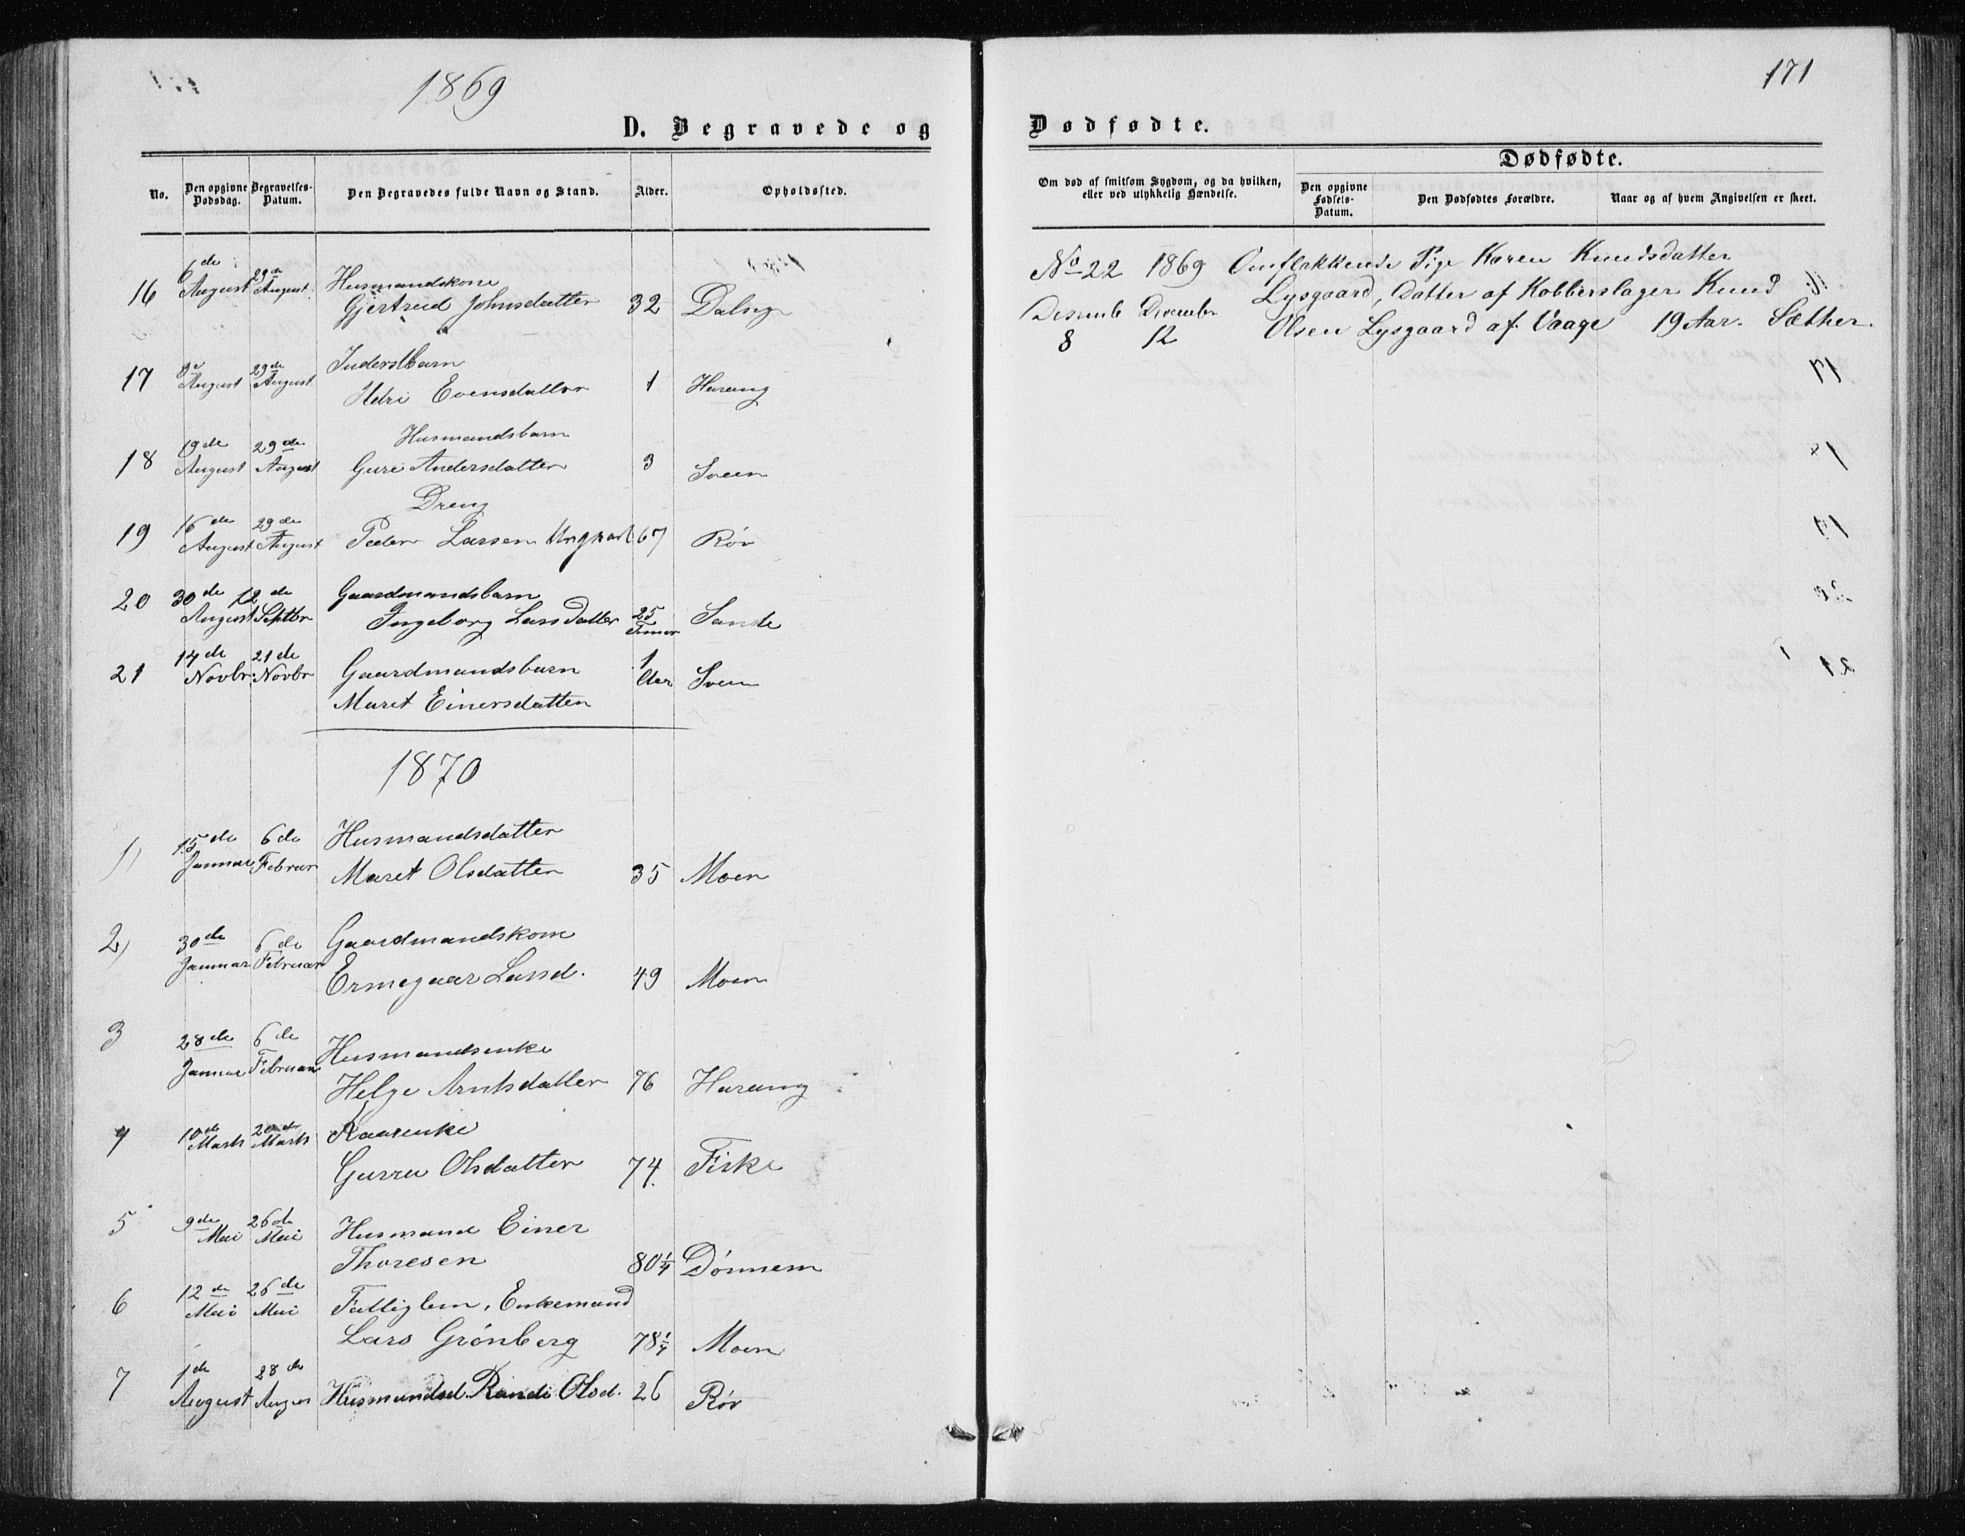 1869
D. Begravede og
No.
Den opgivne Dødsdag.
Begravelses-Datum.
Den Begravedes fulde Navn og Stand.
Alder.
Opholdssted.
16 6te August 29de August Husmandskone
Gjertrud Johnsdatter 32 Dalseg
17 August 29de August Inderstbarn
Evensdatter 1 Harang
18 19de August 29de August Husmandsbarn
Guri Andersdatter 3 Sveen
Dreng
19 16de August 29de August Peder Larsen 67 Rör
20 30de August 12de Septbr Gaardmandsbarn
Ingeborg Larsdatter 25 Timer Sande
21 14de Novbr. 21de Novbr Gaardmandsbarn
Maret Einersdatter 1 Aar Sveen
1870
1) 15de Januar 6de Februar Husmandsdatter
Maret Olsdatter 35 Moen
2) 30de Januar 6de Februar Gaardmandskone
Ermegaar Larsd. 49 Moen
3 28de Januar 6de Februar Husmandsenke
Helge Arntsdatter 76 Harang
4 10de Marts 20de Marts Kaarenke
Gurru Olsdatter 74. Fiske
5 9de Mai 26de Mai Husmand Einer
Thoresen 80 1/4 Dönnem
6 12de Mai 26de Mai Fattiglem, Enkemand
Lars Grönberg 78 1/4 Moen
7 1de August 28de August Husmandsd. Randi Olsd. 26 Rör
171
Dødfødte.
Dødfødte.
Om død af smitsom Sygdom, og da hvilken,
eller ved ulykkelig Hændelse.
Den opgivne Fødsels-Datum.
Den Dødfødtes Forældre.
Naar og af hvem Angivelsen er skeet.
No 22 1869 Omflakkende Pige Karen Knudsdatter
Lysgaard, Datter af Kobberslager Knud
Desemb 8 December 12 Olsen Lysgaard af Vaage 19 Aar. Sæther.